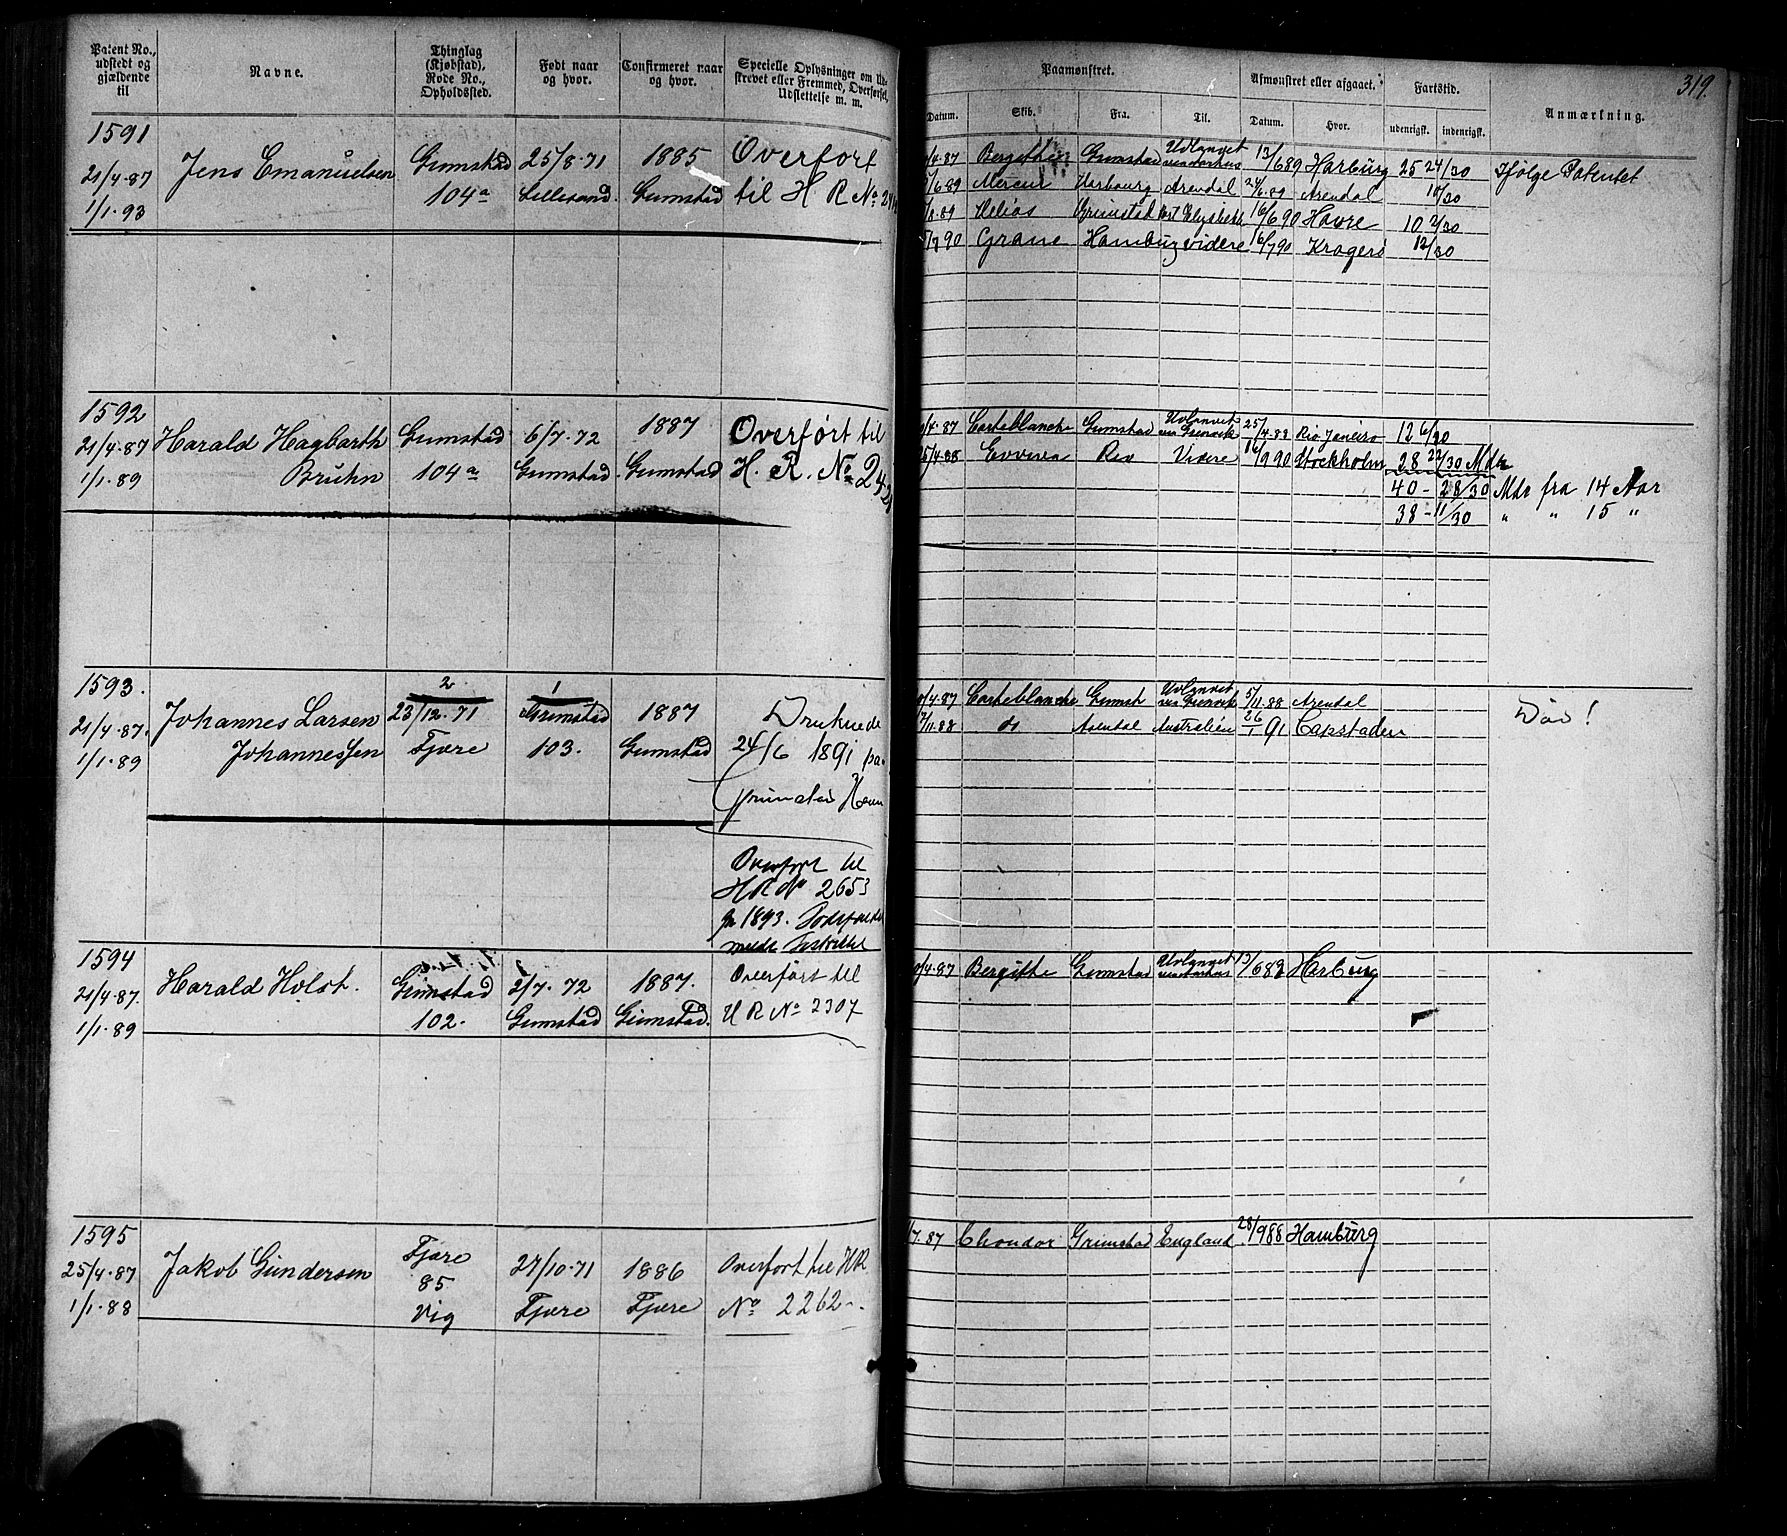 Patent No., udstedt og gjældende til
Navne.
Thinglag (Kjøbstad), Rode No., Opholdssted.
Født naar og hvor.
Confirmeret naar og hvor.
Specielle Oplysninger om Udskrevet eller Fremmed, Overførsel, Udslettelse m. m.
Paamønstret.
Afmønstret eller afgaaet.
Fartstid.
Anmærkning.
319.
Datum.
Skib.
Fra.
Til.
Datum.
Hvor.
udenrigsk.
indenrigsk.
1591
21/4-87
1/1.93
Jens Emanuelsen
Grimstad
104a
25/8.71
Lillesand.
1885
Grimstad
Overført
til H R No
4-87 Bergitte Grimstad Udlandet 13/6 89 Harburg 25 24/30 Ifølge Patentet
/6 89 Mercur Harbourg Arendal 24/6.89 Arendal 10/30
8.89 Helios Grimstad Port Elizabeth 16/6 90 Havre 10 2/30
/7 90 Grane Hamburg videre 16/7 90 Kragerø 12/30
1592
21/4-87
1/1.89
Harald Hagbarth
Bruhn
Grimstad
104a
6/7.72
Grimstad
1887
Grimstad
Overført til
H. R. No 242
4-87 Carteblanche Grimstad Udlandet 25/4.88 Rio Janeiro 12 6/30
5/4-88 Rio Videre 16/9 90 Stockholm 28 22/30 Mdr
40 - 28/30 Mdr fra 14 Aar
38 - 11/30 " " 15 "
1593.
21/4-87.
1/1.89
Johannes Larsen
Johannessen
2
23/12.71
Fjære
1
Grimstad
103.
1887
Grimstad
Druknede
24/6 1891 paa
Grimstad Havn
Overført til
HR No 2653
4-87 Carteblanche Grimst Udlandet 5/11.88 Arendal
/11-88 do Arendal Australien 26/1 91 Capstaden
Død!
1594
21/4-87.
1/1.89
Harald Holst.
Grimstad
102.
2/7.72
Grimstad
1887.
Grimstad.
Overført til
H R No 2307
4-87 Bergitte Grimstad Udlandet 13/6 89 Harburg
1595
25/4-87
1/1.88
Jakob Gundersen
Fjære
85
Vig
27/10.71
Fjære
1886
Fjære
Overført til HR
No 2262.
7.87 Grimstad England 28/9 88 Hamburg